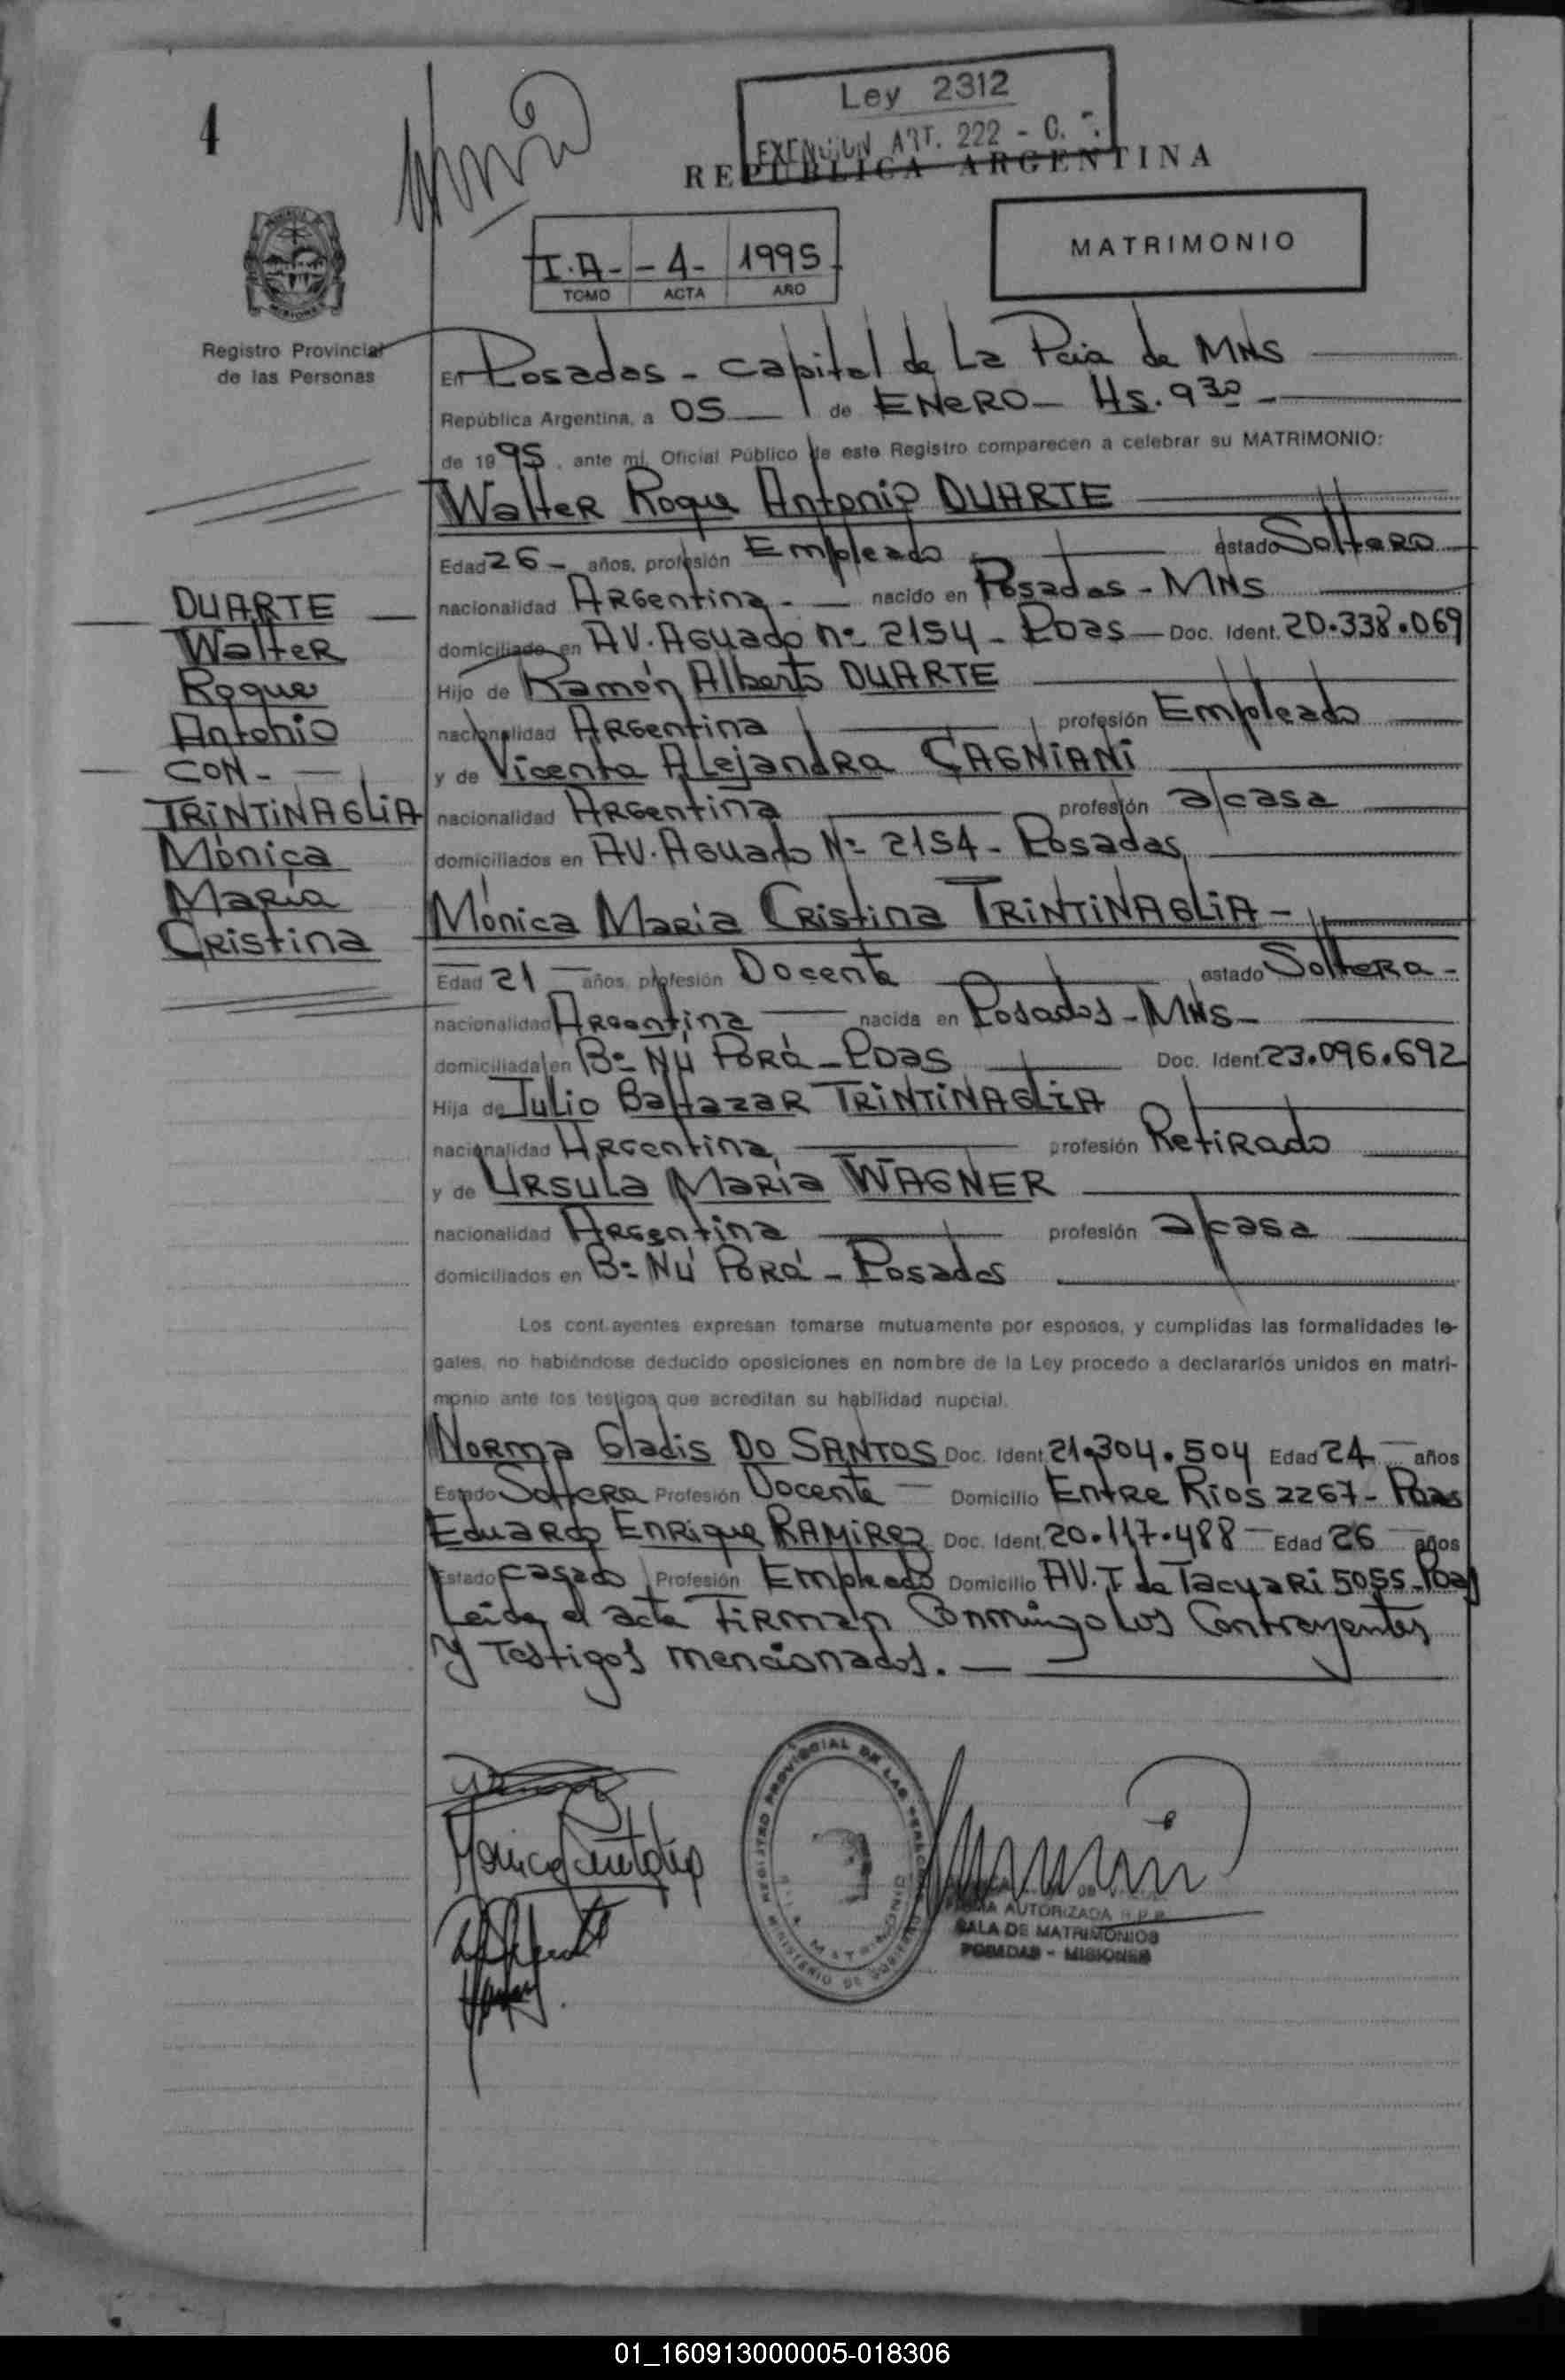 4
Ley 2312
EXENCION ART. 222 - C.
REPUBLICA ARGENTINA
I.A- -4- 1995
TOMO ACTA AÑO
MATRIMONIO
Registro Provincial
de las Personas
En Posadas - Capital de La Pcia de MNS
República Argentina, a 05 de ENERO - Hs. 9 30 -
de 1995, ante mi, Oficial Público de este Registro comparecen a celebrar su MATRIMONIO:
Walter Roque Antonio DUARTE
Edad 26 - años, profesión Empleado estado Soltero
nacionalidad Argentina - nacido en Posadas - MNS
domiciliado en AV. Aguado nº 2154 - Pdas - Doc. Ident. 20.338.069
Hijo de Ramón Alberto DUARTE
nacionalidad Argentina profesión Empleado
y de Vicenta Alejandra CAGNIANI
nacionalidad Argentina profesión a/casa
domiciliados en AV. Aguado Nº 2154 - Posadas
Mónica María Cristina TRINTINAGLIA -
Edad 21 - años, profesión Docente estado Soltera -
nacionalidad Argentina nacida en Posadas - MNS -
domiciliada en Bº Ñú Porá - Pdas Doc. Ident. 23.096.692
Hija de Julio Baltazar TRINTINAGLIA
nacionalidad Argentina profesión Retirado
y de Ursula María WAGNER
nacionalidad Argentina profesión a/casa
domiciliados en Bº Ñú Porá - Posadas
Los contrayentes expresan tomarse mutuamente por esposos, y cumplidas las formalidades le-
gales, no habiéndose deducido oposiciones en nombre de la Ley procedo a declararlos unidos en matri-
monio ante los testigos que acreditan su habilidad nupcial.
Norma Gladis DO SANTOS Doc. Ident. 21.304.504 Edad 24 - años
Estado Soltera Profesión Docente - Domicilio Entre Rios 2267 - Pdas
Eduardo Enrique RAMIREZ Doc. Ident. 20.117.488 - Edad 26 - años
Estado casado Profesión Empleado Domicilio AV. T de Tacuari 5055 - Pdas
Leida el acta Firman Conmigo los Contrayentes
y Testigos mencionados. -
DUARTE
Walter
Roque
Antonio
CON -
TRINTINAGLIA
Mónica
María
Cristina
REGISTRO PROVINCIAL DE LAS PERSONAS
MINISTERIO DE GOBIERNO
FIRMA AUTORIZADA R.P.P.
SALA DE MATRIMONIOS
POSADAS - MISIONES
01_160913000005-018306